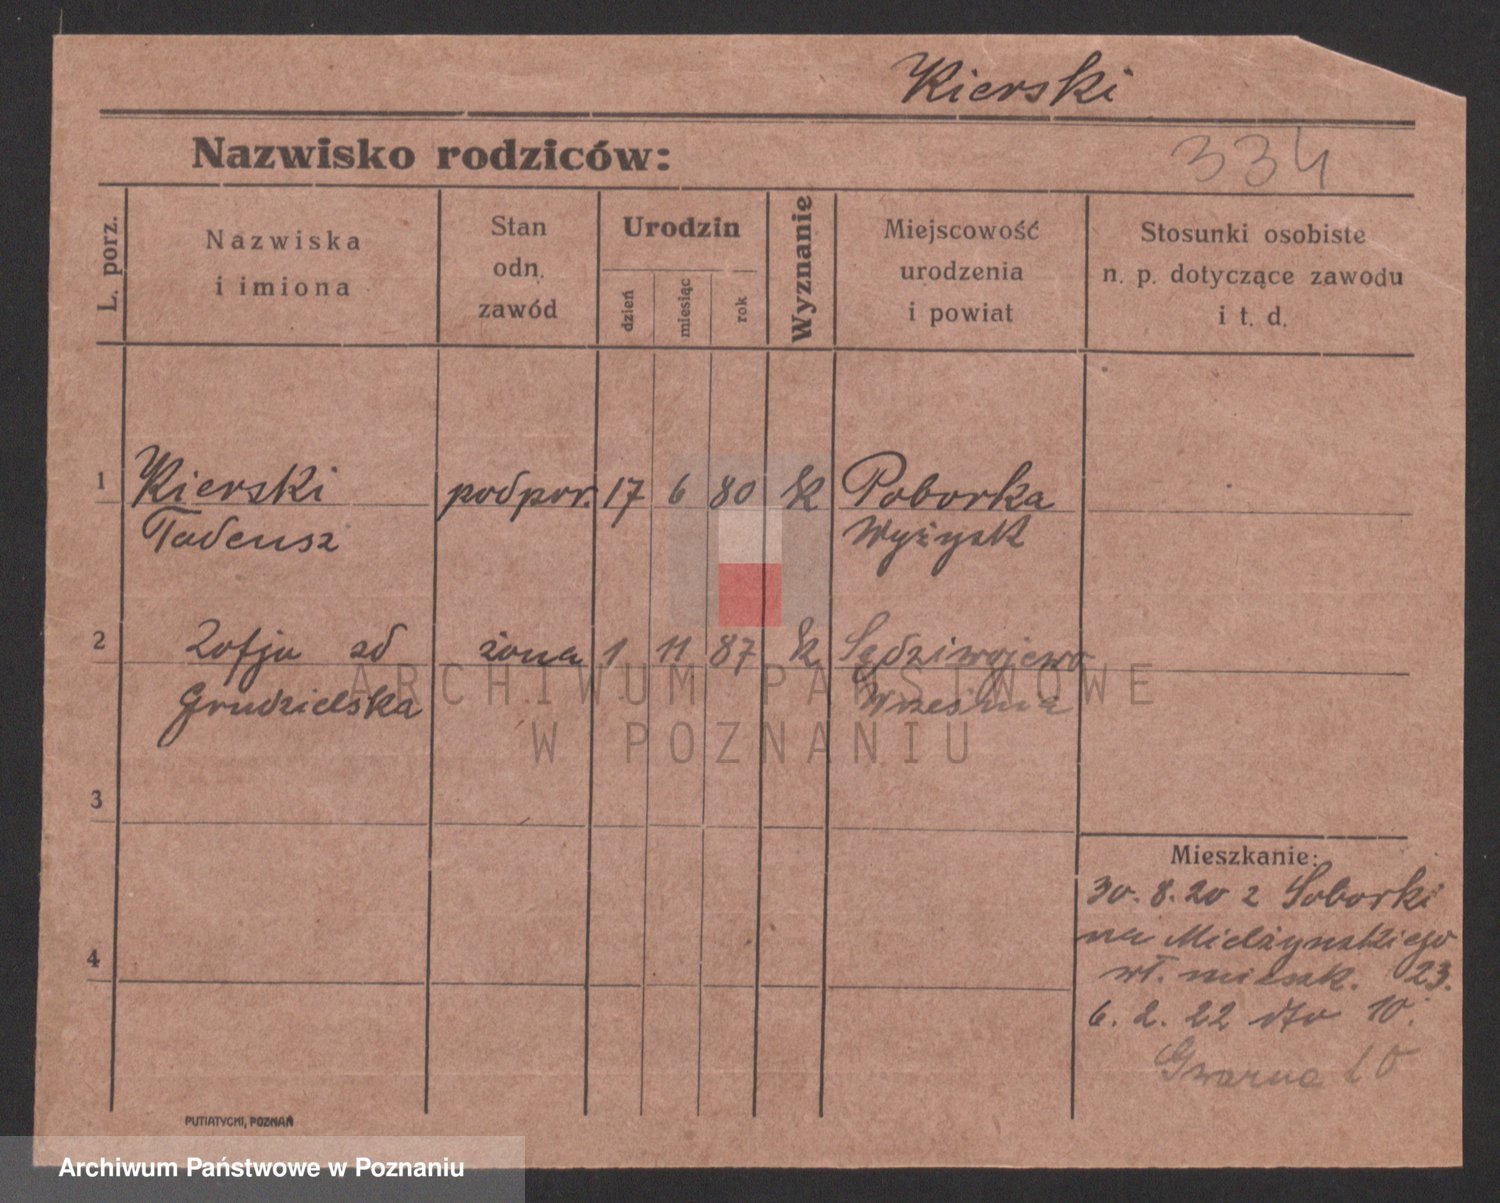 Kierski
Nazwisko rodziców:
334
L. porz.
Nazwiska
i imiona
Stan
odn.
zawód
Urodzin
dzień
miesiąc
rok
Wyznanie
Miejscowość
urodzenia
i powiat
Stosunki osobiste
n. p. dotyczące zawodu
i t. d.
1 Kierski podpor. 17 6 80 k Poborka
Tadeusz Wyżysk
2 Zofja zd żona 1 11 87 k Sędziwojewo
Grudzielska Września
3
4
Mieszkanie:
30. 8. 20 z Poborki
na Mielżynskiego
wł. mieszk. 23.
6. 2. 22 dto 10.
Gwarna 10
PUTIATYCKI, POZNAŃ
ARCHIWUM PAŃSTWOWE
W POZNANIU
Archiwum Państwowe w Poznaniu